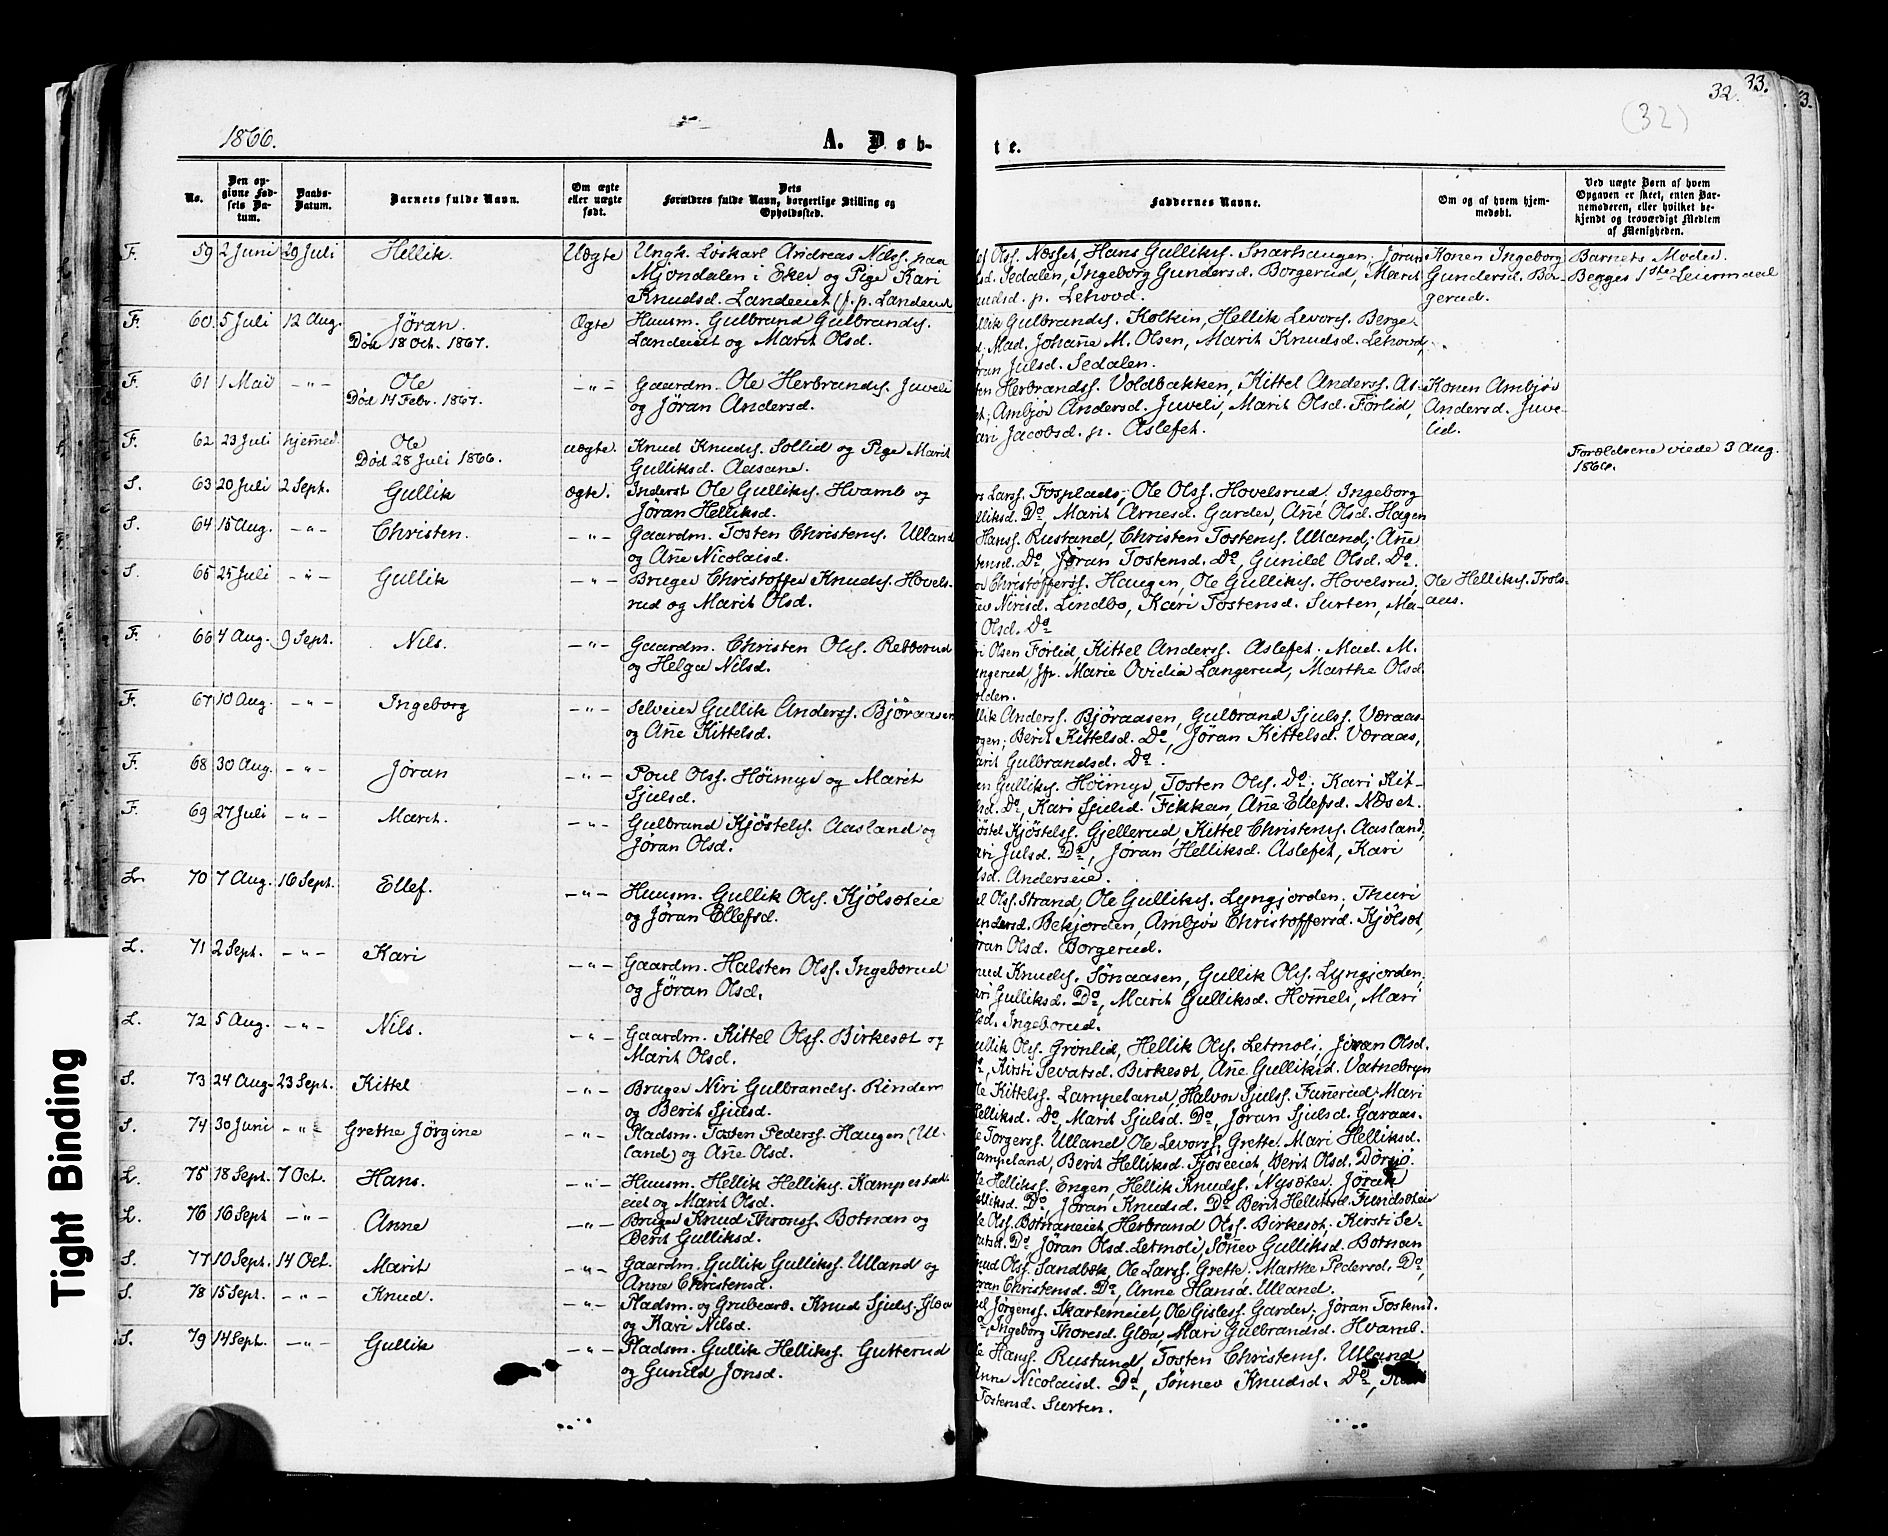 32. 33.
(32)
1866.
A. Døb-
te.
No.
Den op-
givne Fød-
sels Da-
tum.
Daabs-
Datum.
Barnets fulde Navn.
Om ægte
eller uægte
født.
Dets
Forældres fulde Navn, borgerlige Stilling og
Opholdssted.
Faddernes Navne.
Om og af hvem hjem-
medøbt.
Ved uægte Børn af hvem
Opgaven er skeet, enten Bar-
nemoderen, eller hvilket be-
kjendt og troværdigt Medlem
af Menigheden.
F. 59 2 Juni 29 Juli Hellik Uægte Ungk. Løskarl Andreas Nilss. paa
Mjøndalen i Eker og Pige Kari
Knudsd. Landeiiet (f. p. Landeiiet
Olss. Næsset Hans Gulliks. Snarhaugen, Jøran
Sedalen, Ingeborg Gundersd. Borgerud, Marit
p. Lehovd.
Konen Ingeborg
Gundersd. Bor-
gerud.
Barnets Moder.
Berges 1ste Leiermaal
F. 60. 5 Juli 12 Aug. Jøran. Ægte Huusm. Gulbrand Gulbrands.
Død 18 Oct. 1867. Landeiet og Marit Olsd.
Gulbrands. Kolkin, Hellik Levors. Berge
Mad. Johanne M. Olsen, Marit Knudsd. Lehovd,
Julsd. Sedalen.
F. 61 1 Mai -"- Ole -"- Gaardm. Ole Herbrands. Juveli
Død 14 Febr. 1867. og Jøran Andersd.
Herbrandss. Voldbakken, Kittel Anderss. As-
Ambjør Andersd. Juveli, Marit Olsd. Førlid,
Jacobsd. p. Aslefet.
Konen Ambjør
Andersd. Juve-
lid.
F. 62 23 Juli hjemmed. Ole uægte. Knud Knuds. Sollid og Pige Marit
Død 28 Juli 1866. Gulliksd. Aasane.
Forældrene viede 3 Aug.
1866.
S. 63 20 Juli 2 Sept. Gullik ægte. Inderst Ole Gulliks. Hvamb og
Jøran Helliksd.
Larss. Fosplads, Ole Olss. Hovelsrud, Ingeborg
Do, Marit Arnesd. Garder, Ane Olsd. Hagen
S. 64 15 Aug. -"- Christen. -"- Gaardm. Tosten Christens. Ulland
og Ane Nicolaisd.
Hanss. Rustand, Christen Tostens. Ulland, Ane
Do, Jøran Tostensd. Do, Gunild Olsd. Do.
S. 65 25 Juli -"- Gullik -"- Bruger Christoffer Knuds. Hovels-
rud og Marit Olsd.
Christofferss. Haugen, Ole Gulliks. Hovelsrud,
Nirisd. Lindbo, Kari Tostensd. Surten, Ma-
Olsd. Do
Ole Helliks. Trols-
aas.
F. 66 4 Aug. 9 Sept. Nils. -"- Gaardm. Christen Ols. Retberud
og Helga Nilsd.
Olsen Førlid, Kittel Anderss. Aslefet. Mad. M.
Marie Ovidia Langerud, Marthe Olsd
F. 67 10 Aug. -"- Ingeborg -"- Selveier Gullik Anderss. Bjøraasen
og Ane Kittelsd.
Anderss. Bjøraasen, Gulbrand Sjulss. Væraas-
Berit Kittelsd. Do, Jøran Kittelsd. Væraas,
Gulbrandsd. Do.
F. 68 30 Aug. -"- Jøran -"- Poul Olss. Høimyr og Marit
Sjulsd.
Gulliks. Høimyr, Tosten Ols. Do, Kari Kit-
Do, Kari Sjulsd. Fikkan, Ane Ellefsd. Næset.
F. 69 27 Juli -"- Marit. -"- Gulbrand Kjøstels. Aasland og
Jøran Olsd.
Kjøstelss. Gjellerud, Kittel Christens. Aasland,
Julsd. Do, Jøran Helliksd. Aslefet, Kari
Anderseie.
L. 70 7 Aug. 16 Sept. Ellef. -"- Huusm. Gullik Ols. Kjølsæteie
og Jøran Ellefsd.
Olss. Strand, Ole Gulliks. Lyngjorden, Thuri
Bekjorden, Ambjør Christoffersd. Kjølsæt,
Olsd. Borgerud.
L. 71 2 Sept. -"- Kari -"- Gaardm. Halsten Olss. Ingeborud
og Jøran Olsd.
Knuds. Sønaasen, Gullik Ols. Lyngjorden,
Gulliksd. Do, Marit Gulliksd. Homeli, Mari
Ingeborud.
L. 72 5 Aug. -"- Nils. -"- Gaardm. Kittel Olss. Birkesæt og
Marit Olsd.
Ols. Grønlid, Hellik Ols. Letmoli, Jøran Olsd.
Kirsti Sevatsd. Birkesæt, Ane Gulliksd. Vatnebryn
S. 73 24 Aug. 23 Sept. Kittel -"- Bruger Niri Gulbrands. Rindem
og Berit Sjulsd.
Kittelss. Lampeland, Halvor Sjulss. Funnerud, Mari
Do, Marit Sjulsd. Do, Jøran Sjulsd. Garaas.
S. 74 30 Juni -"- Grethe Jørgine -"- Pladsm. Tosten Pederss. Haugen (Ul-
land) og Ane Olsd.
Torgerss. Ulland Ole Levorss. Grette. Mari Helliksd.
Lampeland, Berit Helliksd. Fjøseeiet, Berit Olsd. Dørsjø.
L. 75 18 Sept. 7 Oct. Hans. -"- Huusm. Hellik Helliks. Kampestad-
eiet og Marit Olsd.
Helliks. Engen, Hellik Knudss. Nysæter, Jøran
Do, Jøran Knudsd. Do Berit Helliksd. Fundsæteie
L. 76 16 Sept -"- Anne -"- Bruger Knud Throns. Botnan og
Berit Gulliksd.
Olss. Botnaneiet, Herbrand Olss. Birkesæt, Kirsti Se-
Do, Jøran Olsd. Letmoli, Sønev Gulliksd. Botnan
S. 77 10 Sept. 14 Oct. Marit -"- Gaardm. Gullik Gulliks. Ulland og
Anne Christensd.
Olss. Sandbæk, Ole Larss. Grette, Marthe Pedersd. Do,
Christensd. Do, Anne Hansd. Ulland.
S. 78 15 Sept. -"- Knud. -"- Pladsm. og Grubearb. Knud Sjuls. Glæa
og Kari Nilsd.
Jørgenss. Skartemeiet, Ole Gisless. Garder, Jøran Tostensd.
Ingeborg Thoresd. Glæa, Mari Gulbrandsd. Hvamb.
S. 79 14 Sept. -"- Gullik -"- Pladsm. Gullik Helliks. Gutterud
og Gunild Jonsd.
Hanss. Rustand, Tosten Christens. Ulland,
Anne Nicolaisd. Do, Sønnev Knudsd. Do,
Tostensd. Surten.
Tight Binding